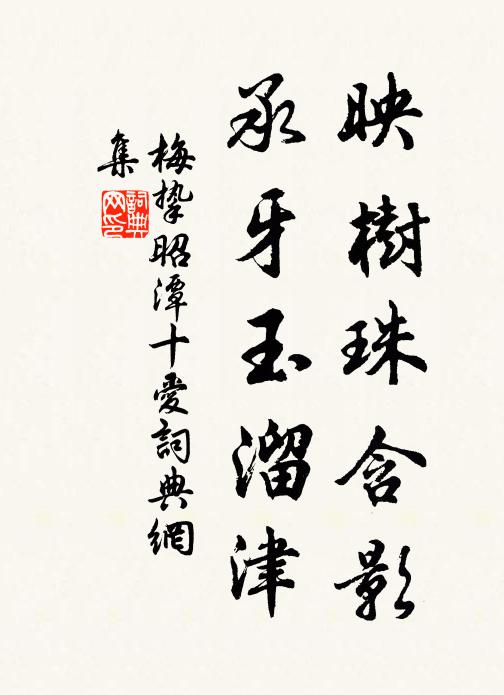 映樹珠含影
承牙玉溜津
梅摯昭潭十愛詞典網
集
詞典
网印